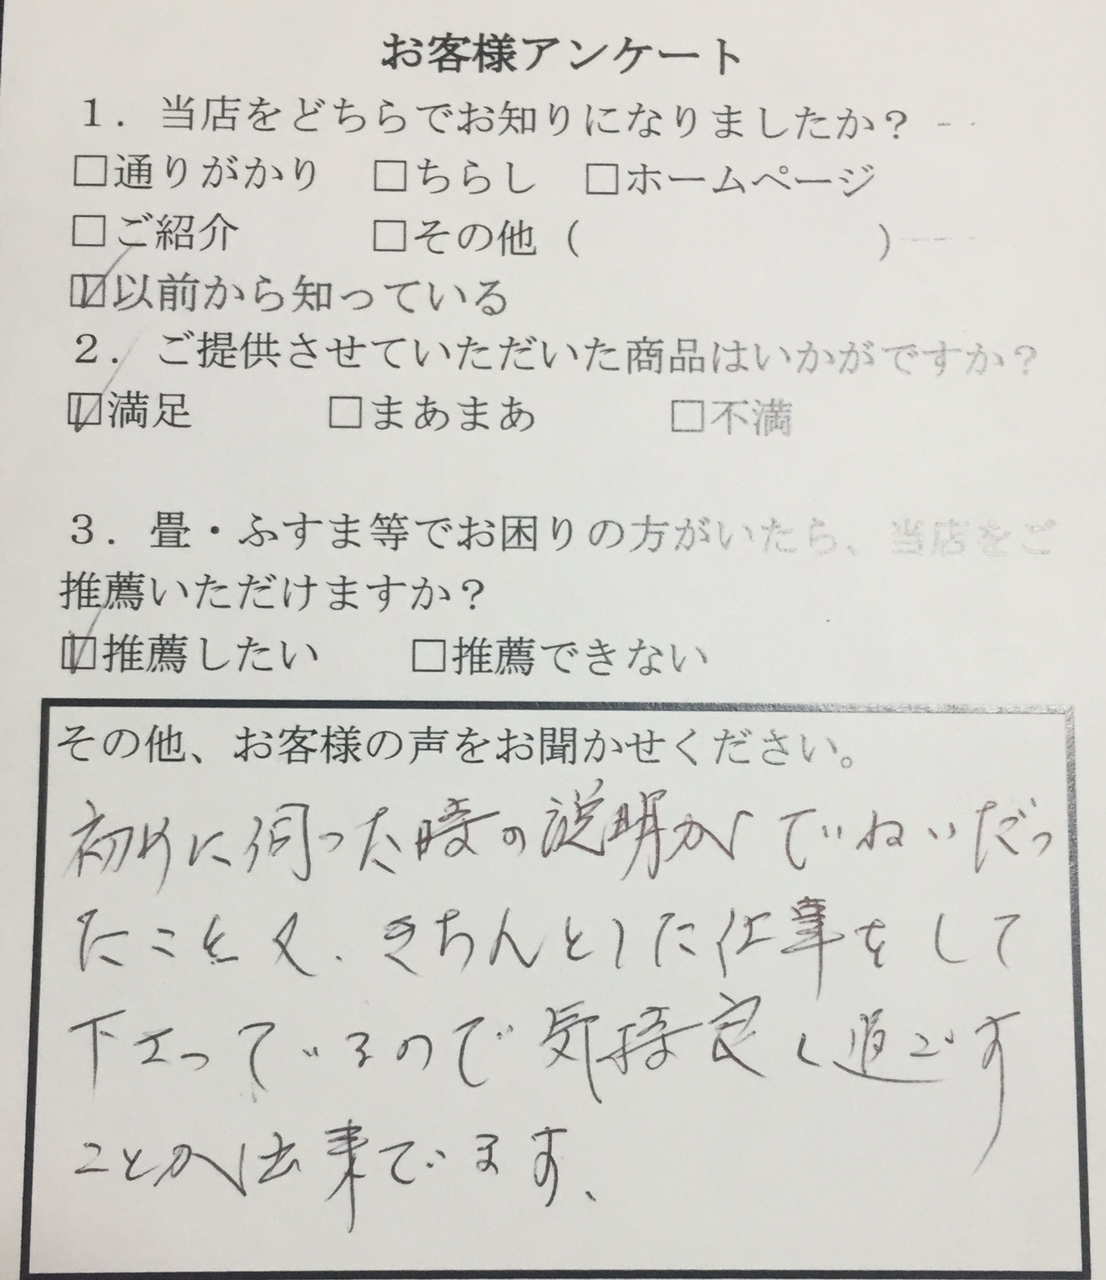 お客様アンケート
1．当店をどちらでお知りになりましたか？
□通りがかり　□ちらし　□ホームページ
□ご紹介　□その他（　）
☑以前から知っている
2．ご提供させていただいた商品はいかがですか？
☑満足　□まあまあ　□不満
3．畳・ふすま等でお困りの方がいたら、当店をご
推薦いただけますか？
☑推薦したい　□推薦できない
その他、お客様の声をお聞かせください。
初めに伺った時の説明がていねいだっ
たこと又、きちんとした仕事をして
下さっているので気持良く過ごす
ことが出来ています、